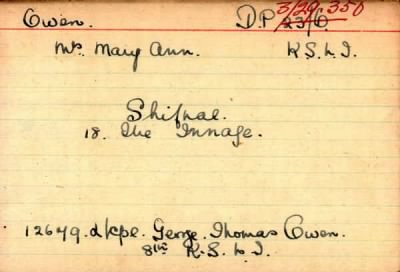 3/29.350
Owen. D.P 23/6.
Mrs. Mary Ann. K.S.L.I.
Shifnal.
18. The Innage.
12649. L/Cpl. George. Thomas Owen.
8th K.S.L.I.